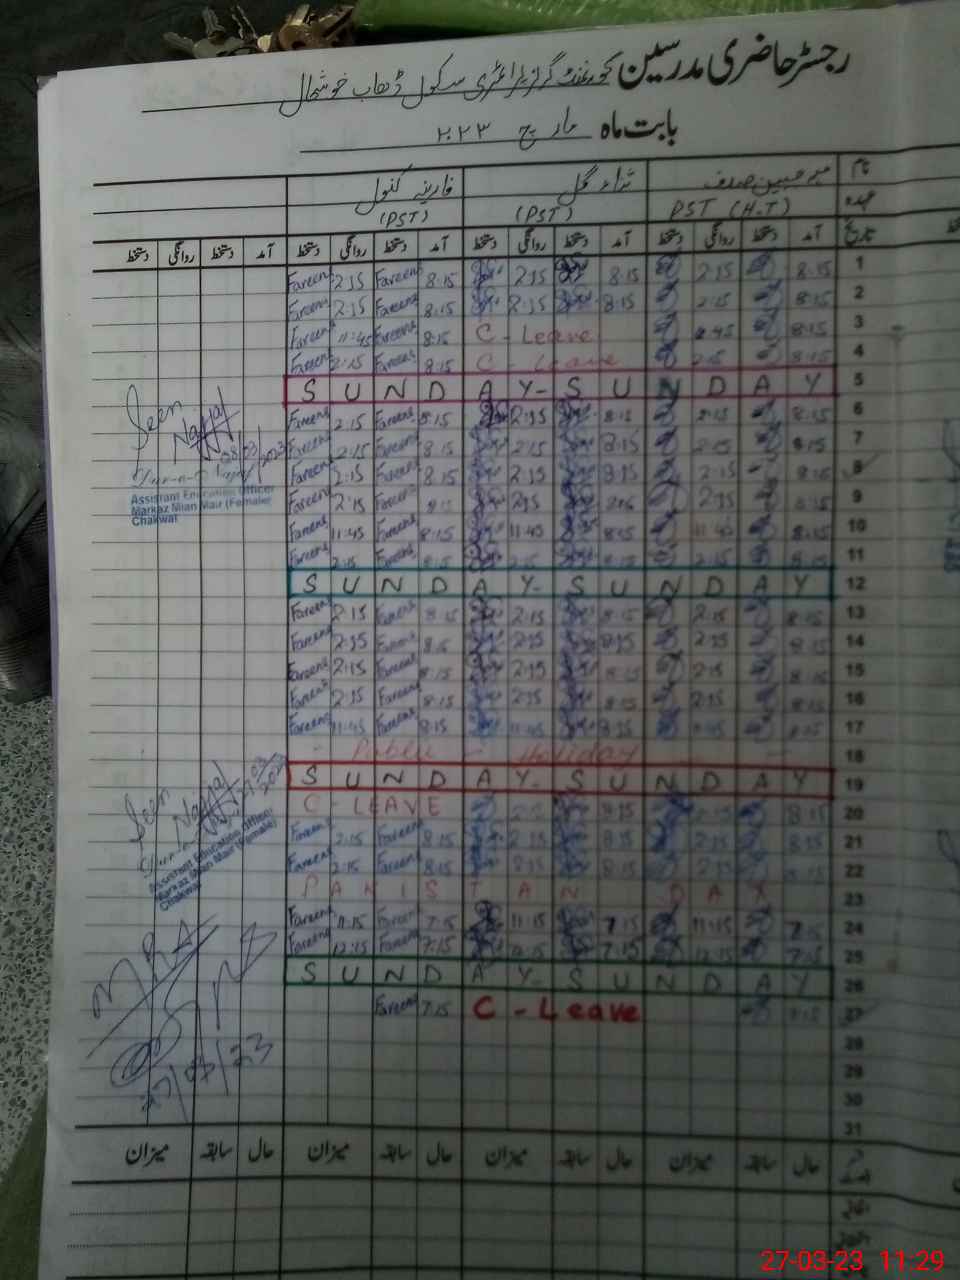 رجسٹر حاضری مدرسین گورنمنٹ گرلز ایلیمنٹری سکول ڈھاب خوشحال
بابت ماہ مارچ ۲۰۲۳
نام صدف ثناء گل فارینہ کنول
عہدہ PST (H.T) (PST) (PST)
تاریخ آمد دستخط روانگی دستخط آمد دستخط روانگی دستخط آمد دستخط روانگی دستخط آمد دستخط روانگی دستخط
1 8:15 2:15 8:15 2:15 8:15 Fareena 2:15 Fareena
2 8:15 2:15 8:15 2:15 8:15 Fareena 2:15 Fareena
3 8:15 11:45 C - Leave 8:15 Fareena 11:45 Fareena
4 8:15 2:15 C - Leave 8:15 Fareena 2:15 Fareena
5 SUNDAY - SUNDAY
6 8:15 2:15 8:15 2:15 8:15 Fareena 2:15 Fareena
7 8:15 2:15 8:15 2:15 8:15 Fareena 2:15 Fareena
8 8:15 2:15 8:15 2:15 8:15 Fareena 2:15 Fareena
9 8:15 2:15 8:15 2:15 8:15 Fareena 2:15 Fareena
10 8:15 11:45 8:15 11:45 8:15 Fareena 11:45 Fareena
11 8:15 2:15 8:15 2:15 8:15 Fareena 2:15 Fareena
12 SUNDAY - SUNDAY
13 8:15 2:15 8:15 2:15 8:15 Fareena 2:15 Fareena
14 8:15 2:15 8:15 2:15 8:15 Fareena 2:15 Fareena
15 8:15 2:15 8:15 2:15 8:15 Fareena 2:15 Fareena
16 8:15 2:15 8:15 2:15 8:15 Fareena 2:15 Fareena
17 8:15 11:45 8:15 11:45 8:15 Fareena 11:45 Fareena
18 - Public - Holiday -
19 SUNDAY - SUNDAY
20 8:15 2:15 8:15 2:15 C - LEAVE
21 8:15 2:15 8:15 2:15 8:15 Fareena 2:15 Fareena
22 8:15 2:15 8:15 2:15 8:15 Fareena 2:15 Fareena
23 PAKISTAN DAY
24 7:15 11:15 7:15 11:15 7:15 Fareena 11:15 Fareena
25 7:15 12:15 7:15 12:15 7:15 Fareena 12:15 Fareena
26 SUNDAY - SUNDAY
27 7:15 C - Leave 7:15 Fareena
28
29
30
31
حال سابقہ میزان حال سابقہ میزان حال سابقہ میزان حال سابقہ میزان
Seen
08/03/2023
Assistant Education Officer
Markaz Mian Mair (Female)
Chakwal
Seen
Assistant Education Officer
Markaz Mian Mair (Female)
Chakwal
27/03/23
27-03-23 11:29